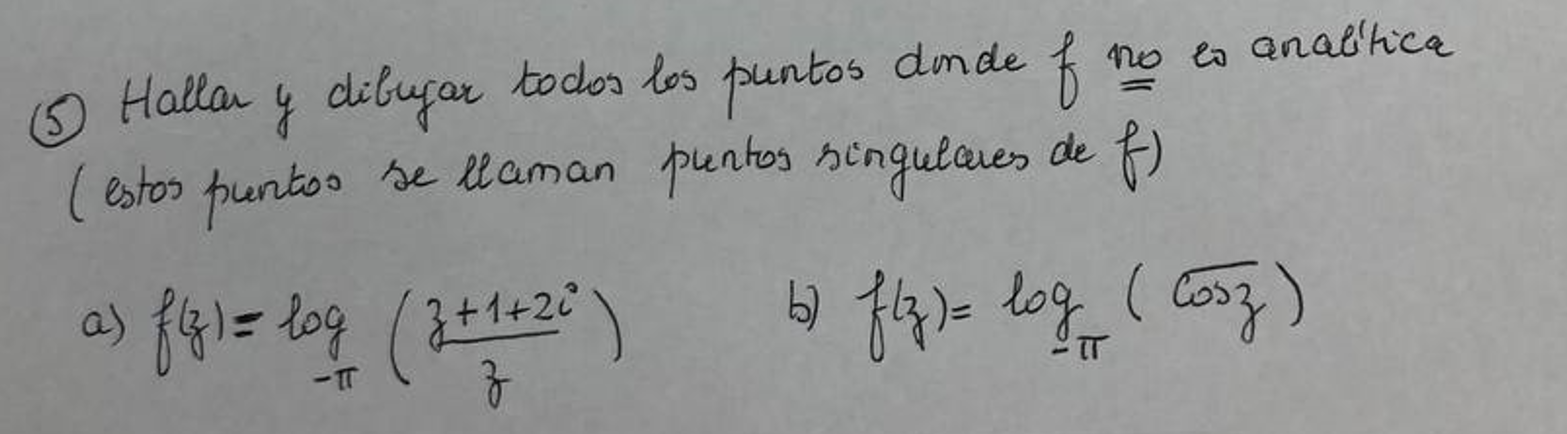 ⑤ Hallar y dibujar todos los puntos donde f no es analítica
(estos puntos se llaman puntos singulares de f)
a) f(z) = log_{-π} ( \frac{z+1+2i}{z} )    b) f(z) = log_{-π} ( \overline{cos z} )